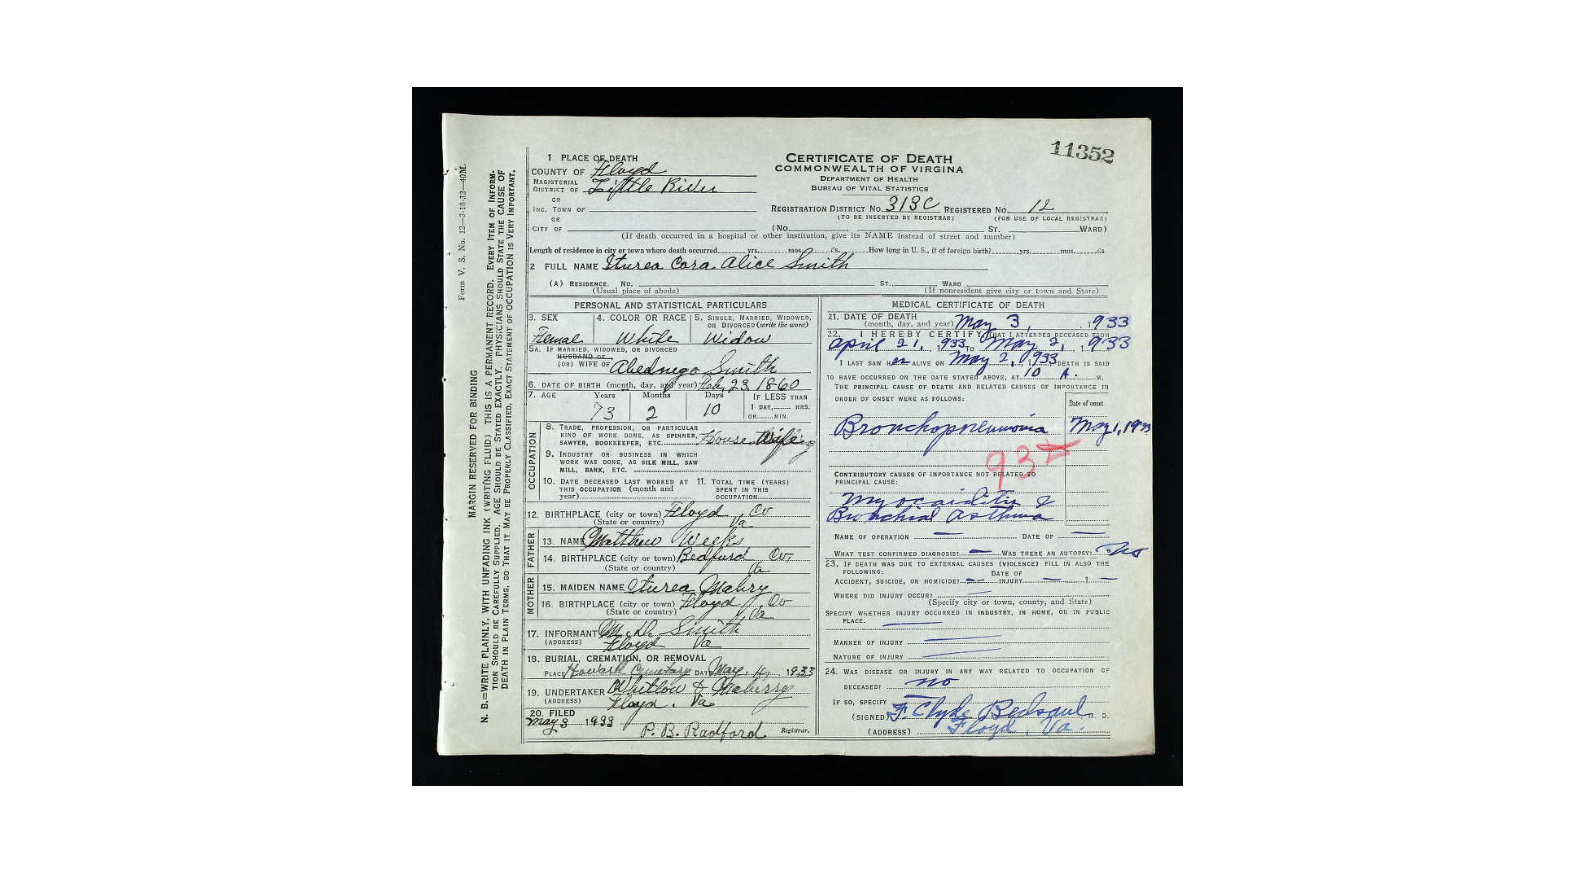 11352
1 PLACE OF DEATH
COUNTY OF Floyd
MAGISTERIAL DISTRICT OF Little River
OR
INC. TOWN OF
OR
CITY OF
CERTIFICATE OF DEATH
COMMONWEALTH OF VIRGINIA
DEPARTMENT OF HEALTH
BUREAU OF VITAL STATISTICS
REGISTRATION DISTRICT NO. 313C REGISTERED NO. 12
(TO BE INSERTED BY REGISTRAR) (FOR USE OF LOCAL REGISTRAR)
(No. ST. WARD)
(If death occurred in a hospital or other institution, give its NAME instead of street and number)
Length of residence in city or town where death occurred yrs. mos. ds. How long in U. S., if of foreign birth? yrs. mos. ds
2 FULL NAME Iturea Cora Alice Smith
(A) RESIDENCE. No. ST. WARD
(Usual place of abode) (If nonresident give city or town and State)
PERSONAL AND STATISTICAL PARTICULARS
3. SEX 4. COLOR OR RACE 5. SINGLE, MARRIED, WIDOWED, OR DIVORCED (write the word)
Femal White Widow
5A. IF MARRIED, WIDOWED, OR DIVORCED
HUSBAND OF
(OR) WIFE OF Abednego Smith
6. DATE OF BIRTH (month, day, and year) Feb, 23, 1860
7. AGE Years Months Days IF LESS THAN
73 2 10 1 DAY, HRS.
OR MIN.
OCCUPATION
8. TRADE, PROFESSION, OR PARTICULAR
KIND OF WORK DONE, AS SPINNER,
SAWYER, BOOKKEEPER, ETC. House Wifing
9. INDUSTRY OR BUSINESS IN WHICH
WORK WAS DONE, AS SILK MILL, SAW
MILL, BANK, ETC.
10. DATE DECEASED LAST WORKED AT THIS OCCUPATION (month and year)
11. TOTAL TIME (YEARS) SPENT IN THIS OCCUPATION
12. BIRTHPLACE (city or town) Floyd Co
(State or country) Va
FATHER
13. NAME Matthew Weeks
14. BIRTHPLACE (city or town) Bedford Co,
(State or country) Va
MOTHER
15. MAIDEN NAME Iturea Mabry
16. BIRTHPLACE (city or town) Floyd Co
(State or country) Va
17. INFORMANT M. D. Smith
(ADDRESS) Floyd Va
18. BURIAL, CREMATION, OR REMOVAL
PLACE Howard Cemetary DATE May, 4, 1933
19. UNDERTAKER Whitlow & Maberry
(ADDRESS) Floyd, Va
20. FILED
May 3 1933 P. B. Radford Registrar.
MEDICAL CERTIFICATE OF DEATH
21. DATE OF DEATH
(month, day, and year) May 3, 1933
22. I HEREBY CERTIFY, THAT I ATTENDED DECEASED FROM
April 21, 1933 TO May 2, 1933
I LAST SAW HER ALIVE ON May 2, 1933 DEATH IS SAID
TO HAVE OCCURRED ON THE DATE STATED ABOVE, AT 10 A. M.
THE PRINCIPAL CAUSE OF DEATH AND RELATED CAUSES OF IMPORTANCE IN
ORDER OF ONSET WERE AS FOLLOWS: Date of onset
Bronchopneumonia May 1, 1933
93
CONTRIBUTORY CAUSES OF IMPORTANCE NOT RELATED TO
PRINCIPAL CAUSE:
Myocarditis &
Bronchial Asthma
NAME OF OPERATION — DATE OF —
WHAT TEST CONFIRMED DIAGNOSIS? — WAS THERE AN AUTOPSY? No
23. IF DEATH WAS DUE TO EXTERNAL CAUSES (VIOLENCE) FILL IN ALSO THE
FOLLOWING: DATE OF
ACCIDENT, SUICIDE, OR HOMICIDE? — INJURY — 1 —
WHERE DID INJURY OCCUR? —
(Specify city or town, county, and State)
SPECIFY WHETHER INJURY OCCURRED IN INDUSTRY, IN HOME, OR IN PUBLIC
PLACE. —
MANNER OF INJURY —
NATURE OF INJURY —
24. WAS DISEASE OR INJURY IN ANY WAY RELATED TO OCCUPATION OF
DECEASED? no
IF SO, SPECIFY —
(SIGNED) F. Clyde Bedsaul, M. D.
(ADDRESS) Floyd, Va.
Form V. S. No. 12—3-18-32—40M.
MARGIN RESERVED FOR BINDING
N. B.—WRITE PLAINLY, WITH UNFADING INK (WRITING FLUID) THIS IS A PERMANENT RECORD. EVERY ITEM OF INFORM-
TION SHOULD BE CAREFULLY SUPPLIED. AGE SHOULD BE STATED EXACTLY. PHYSICIANS SHOULD STATE THE CAUSE OF
DEATH IN PLAIN TERMS, SO THAT IT MAY BE PROPERLY CLASSIFIED. EXACT STATEMENT OF OCCUPATION IS VERY IMPORTANT.